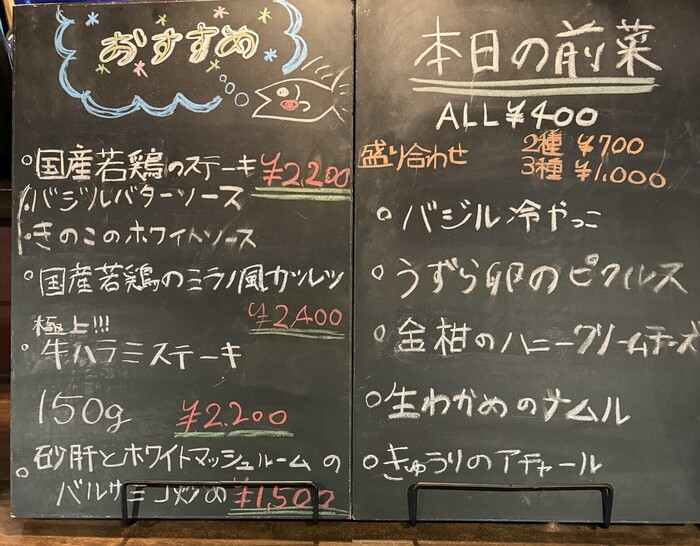 おすすめ
○国産若鶏のステーキ ¥2,200
・バジルバターソース
・きのこのホワイトソース
○国産若鶏のミラノ風カツレツ
¥2,400
極上!!!
○牛ハラミステーキ
150g ¥2,200
○砂肝とホワイトマッシュルームの
バルサミコ炒め ¥1,500
本日の前菜
ALL ¥400
盛り合わせ 2種 ¥700
3種 ¥1,000
○バジル冷やっこ
○うずら卵のピクルス
○金柑のハニークリームチーズ
○生わかめのナムル
○きゅうりのアチャール